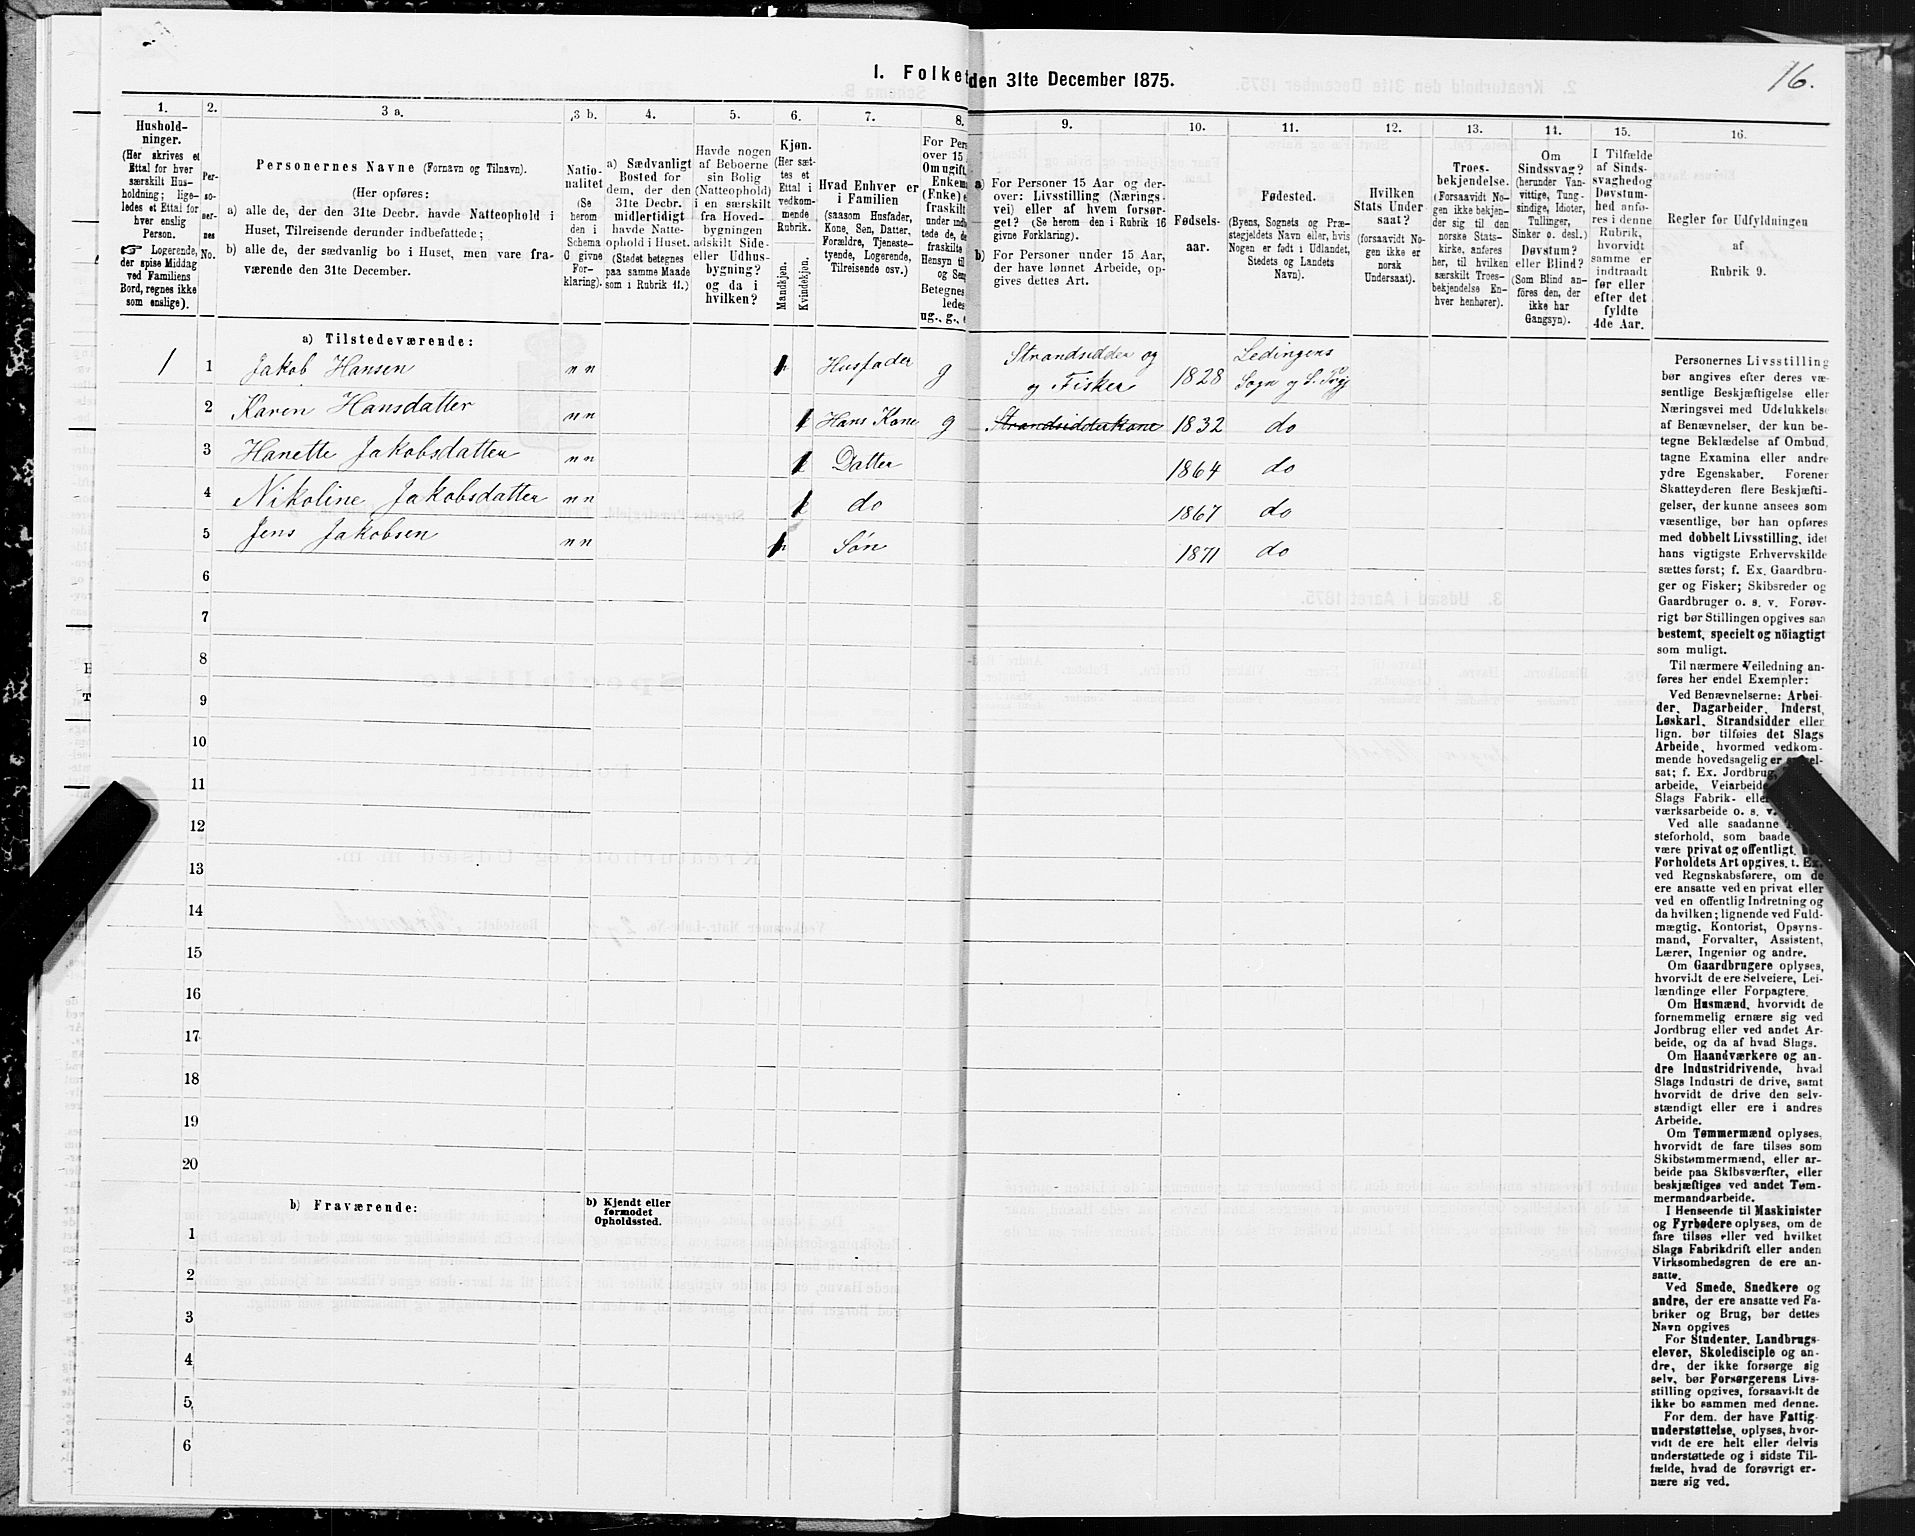 16.
I. Folke den 31te December 1875.
1. 2. 3 a. 3 b. 4. 5. 6. 7. 8. 9. 10. 11. 12. 13. 14. 15. 16.
Hushold-
ninger.
(Her skrives et
Ettal for hver
særskilt Hus-
holdning; lige-
ledes et Ettal for
hver enslig
Person.
☞ Logerende,
der spise Middag
ved Familiens
Bord, regnes ikke
som enslige).
Per-
so-
ner-
nes
No.
Personernes Navne (Fornavn og Tilnavn).
(Her opføres:
a) alle de, der den 31te Decbr. havde Natteophold i
Huset, Tilreisende derunder indbefattede;
b) alle de, der sædvanlig bo i Huset, men vare fra-
værende den 31te December.
Natio-
nalitet
(Se
herom
den i
Schema
C givne
For-
klaring).
a) Sædvanligt
Bosted for
dem, der den
31te Decbr.
midlertidigt
havde Natte-
ophold i Huset.
(Stedet betegnes
paa samme Maade
som i Rubrik 11.)
Havde nogen
af Beboerne
sin Bolig
(Natteophold)
i en særskilt
fra Hoved-
bygningen
adskilt Side-
eller Udhus-
bygning?
og da i
hvilken?
Kjøn.
(Her sæt-
tes et
Ettal i
vedkom-
mende
Rubrik.
Mandkjøn.
Kvindekjøn.
Hvad Enhver er
i Familien
(saasom Husfader,
Kone, Søn, Datter,
Forældre, Tjeneste-
tyende, Logerende,
Tilreisende osv.)
For Pers
over 15
Om ugift
Enkem
(Enke) e
fraskilt
under indb
tede de, de
fraskilte
Hensyn til
og Sen
Betegnes
ledes
ug., g., e
a) For Personer 15 Aar og der-
over: Livsstilling (Nærings-
vei) eller af hvem forsør-
get? (Se herom den i Rubrik 16
givne Forklaring).
b) For Personer under 15 Aar,
der have lønnet Arbeide, op-
gives dettes Art.
Fødsels-
aar.
Fødested.
(Byens, Sognets og Præ-
stegjeldets Navn eller, hvis
Nogen er født i Udlandet,
Stedets og Landets
Navn).
Hvilken
Stats Under
saat?
(forsaavidt No-
gen ikke er
norsk
Undersaat).
Troes-
bekjendelse.
(Forsaavidt No-
gen ikke bekjen-
der sig til den
norske Stats-
kirke, anføres
her, til hvilken
særskilt Troes-
bekjendelse En-
hver henhører).
Om
Sindssvag?
(herunder Van-
vittige, Tung-
sindige, Idioter,
Tullinger,
Sinker o. desl.)
Døvstum?
eller Blind?
(Som Blind an-
føres den, der
ikke har
Gangsyn).
I Tilfælde
af Sinds-
svaghed og
Døvstum-
hed anfø-
res i denne
Rubrik,
hvorvidt
samme er
indtraadt
før eller
efter det
fyldte
4de Aar.
Regler før Udfyldningen
af
Rubrik 9.
a) Tilstedeværende:
1 1 Jakob Hansen n n 1 Husfader g Strandsidder og
og Fisker 1828 Lødingens
Sogn og
2 Karen Hansdatter n n 1 Hans Kone g Strandsidderkone 1832 do
3 Hanette Jakobsdatter n n 1 Datter 1864 do
4 Nikoline Jakobsdatter n n 1 do 1867 do
5 Jens Jakobsen n n 1 Søn 1871 do
6
7
8
9
10
11
12
13
14
15
16
17
18
19
20
b) Fraværende:
b) Kjendt eller
formodet
Opholdssted.
1
2
3
4
5
6
Personernes Livsstilling
bør angives efter deres væ-
sentlige Beskjæftigelse eller
Næringsvei med Udelukkelse
af Benævnelser, der kun be-
tegne Beklædelse af Ombud,
tagne Examina eller andre
ydre Egenskaber. Forener
Skatteyderen flere Beskjæfti-
gelser, der kunne ansees som
væsentlige, bør han opføres
med dobbelt Livsstilling, idet
hans vigtigste Erhvervskilde
sættes først; f. Ex. Gaardbru-
ger og Fisker; Skibsreder og
Gaardbruger o. s. v. Forøv-
rigt bør Stillingen opgives saa
bestemt, specielt og nöiagtigt
som muligt.
Til nærmere Veiledning an-
føres her endel Exempler:
Ved Benævnelserne: Arbei-
der, Dagarbeider, Inderst,
Løskarl, Strandsidder eller
lign. bør tilføies det Slags
Arbeide, hvormed vedkom-
mende hovedsagelig er
sat; f. Ex. Jordbrug,
arbeide, Veiarbeide
Slags Fabrik- eller
værksarbeide o. s. v.
Ved alle saadanne
steforhold, som baade
være privat og offentligt,
Forholdets Art opgives, t. Ex.
ved Regnskabsførere, om de
ere ansatte ved en privat eller
ved en offentlig Indretning og
da hvilken; lignende ved Fuld-
mægtig, Kontorist, Opsyns-
mand, Forvalter, Assistent,
Lærer, Ingeniør og andre.
Om Gaardbrugere oplyses,
hvorvidt de ere Selveiere, Lei-
lændinge eller Forpagtere.
Om Husmænd, hvorvidt de
fornemmelig ernære sig ved
Jordbrug eller ved andet Ar-
beide, og da af hvad Slags.
Om Haandværkere og an-
dre Industridrivende, hvad
Slags Industri de drive, samt
hvorvidt de drive den selv-
stændigt eller ere i andres
Arbeide.
Om Tømmermænd oplyses,
hvorvidt de fare tilsøs som
Skibstømmermænd, eller ar-
beide paa Skibsværfter, eller
beskjæftiges ved andet Tøm-
mermandsarbeide.
I Henseende til Maskinister
og Fyrbødere oplyses, om de
fare tilsøs eller ved hvilket
Slags Fabrikdrift eller anden
Virksomhedsgren de ere an-
satte.
Ved Smede, Snedkere og
andre, der ere ansatte ved Fa-
briker og Brug, bør dettes
Navn opgives
For Studenter, Landbrugs-
elever, Skoledisciple og an-
dre, der ikke forsørge sig
selv, bør Forsørgerens Livs-
stilling opgives, forsaavidt de
ikke bo sammen med denne.
For dem, der have Fattig-
understøttelse, oplyses, hvor-
vidt de ere helt eller delvis
understøttede og i sidste Til-
fælde, hvad de forøvrigt er-
nære sig ved.